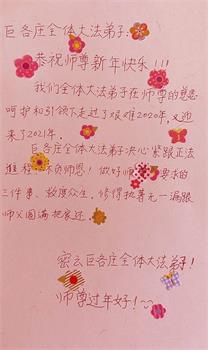 巨各庄全体大法弟子:
恭祝师尊新年快乐!!!
我们全体大法弟子在师尊的慈悲
呵护和引领下走过了艰难2020年,又迎
来了2021年。
巨各庄全体大法弟子决心紧跟正法
进程,不负师恩!做好师尊要求的
三件事、救度众生,修得执著无一漏跟
师父圆满把家还
密云巨各庄全体大法弟子!
师尊过年好!